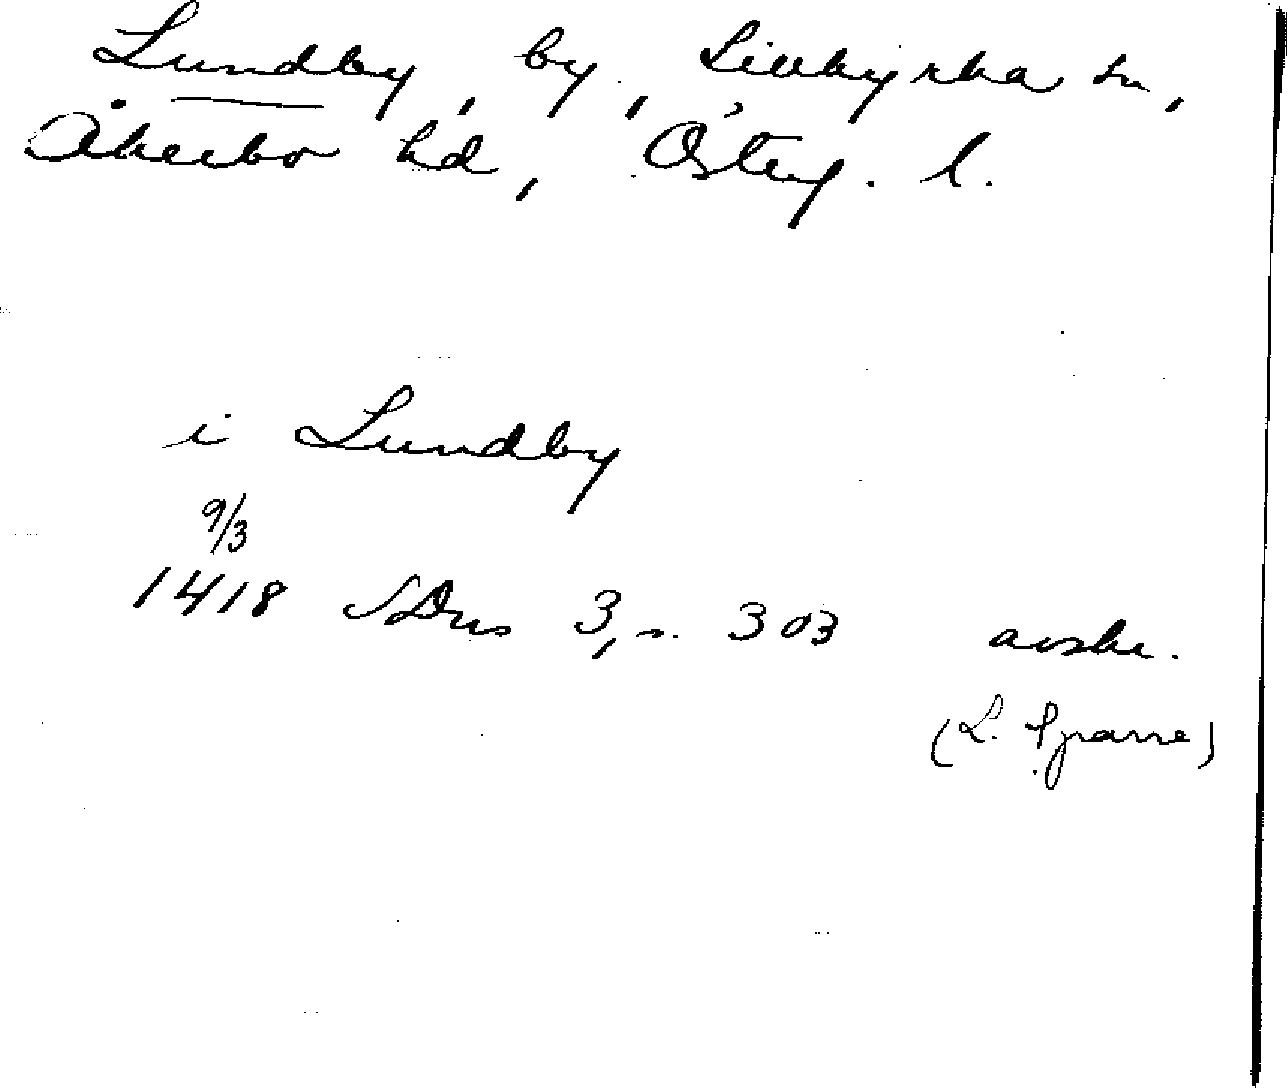 Lundby, by, Livkyrka sn,
Åkerbo hd, Österg. l.
i Lundby
9/3
1418 SDns 3, s. 303 avskr.
(L. Sparre)